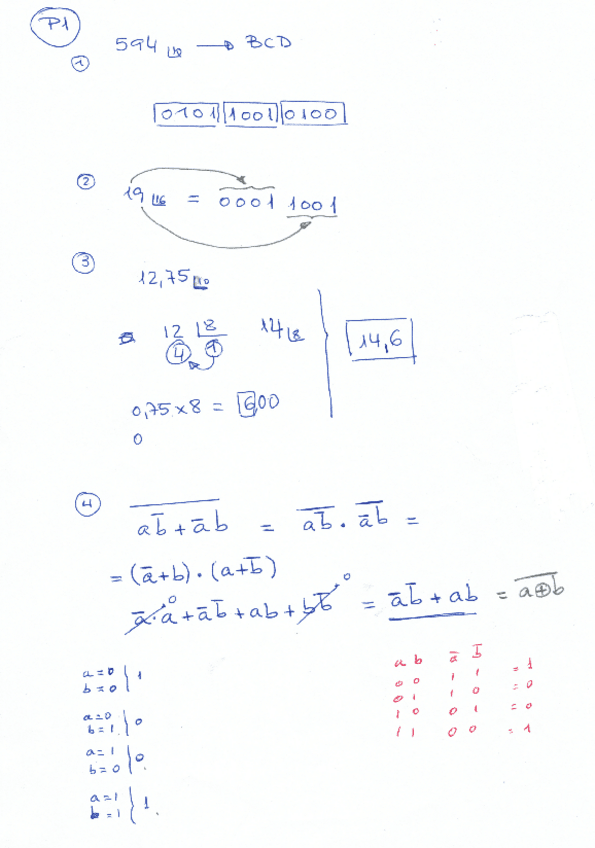 P1
594⌊10 → BCD
①
0101 1001 0100
② 19⌊16 = 0001 1001
③
12,75⌊10
12 ⌊8 14⌊8
4 1
14,6
0,75 x 8 = 6,00
0
④ \overline{a\bar{b} + \bar{a}b} = \overline{a\bar{b}} · \overline{\bar{a}b} =
= (ā+b) · (a+b̄)
ā·a⁰ + āb̄ + ab + bb̄⁰ = āb̄ + ab = \overline{a⊕b}
a=0
b=0 } 1
a=0
b=1. } 0
a=1
b=0 } 0.
a=1
b=1 } 1.
a b ā b̄
0 0 1 1 = 1
0 1 1 0 = 0
1 0 0 1 = 0
1 1 0 0 = 1